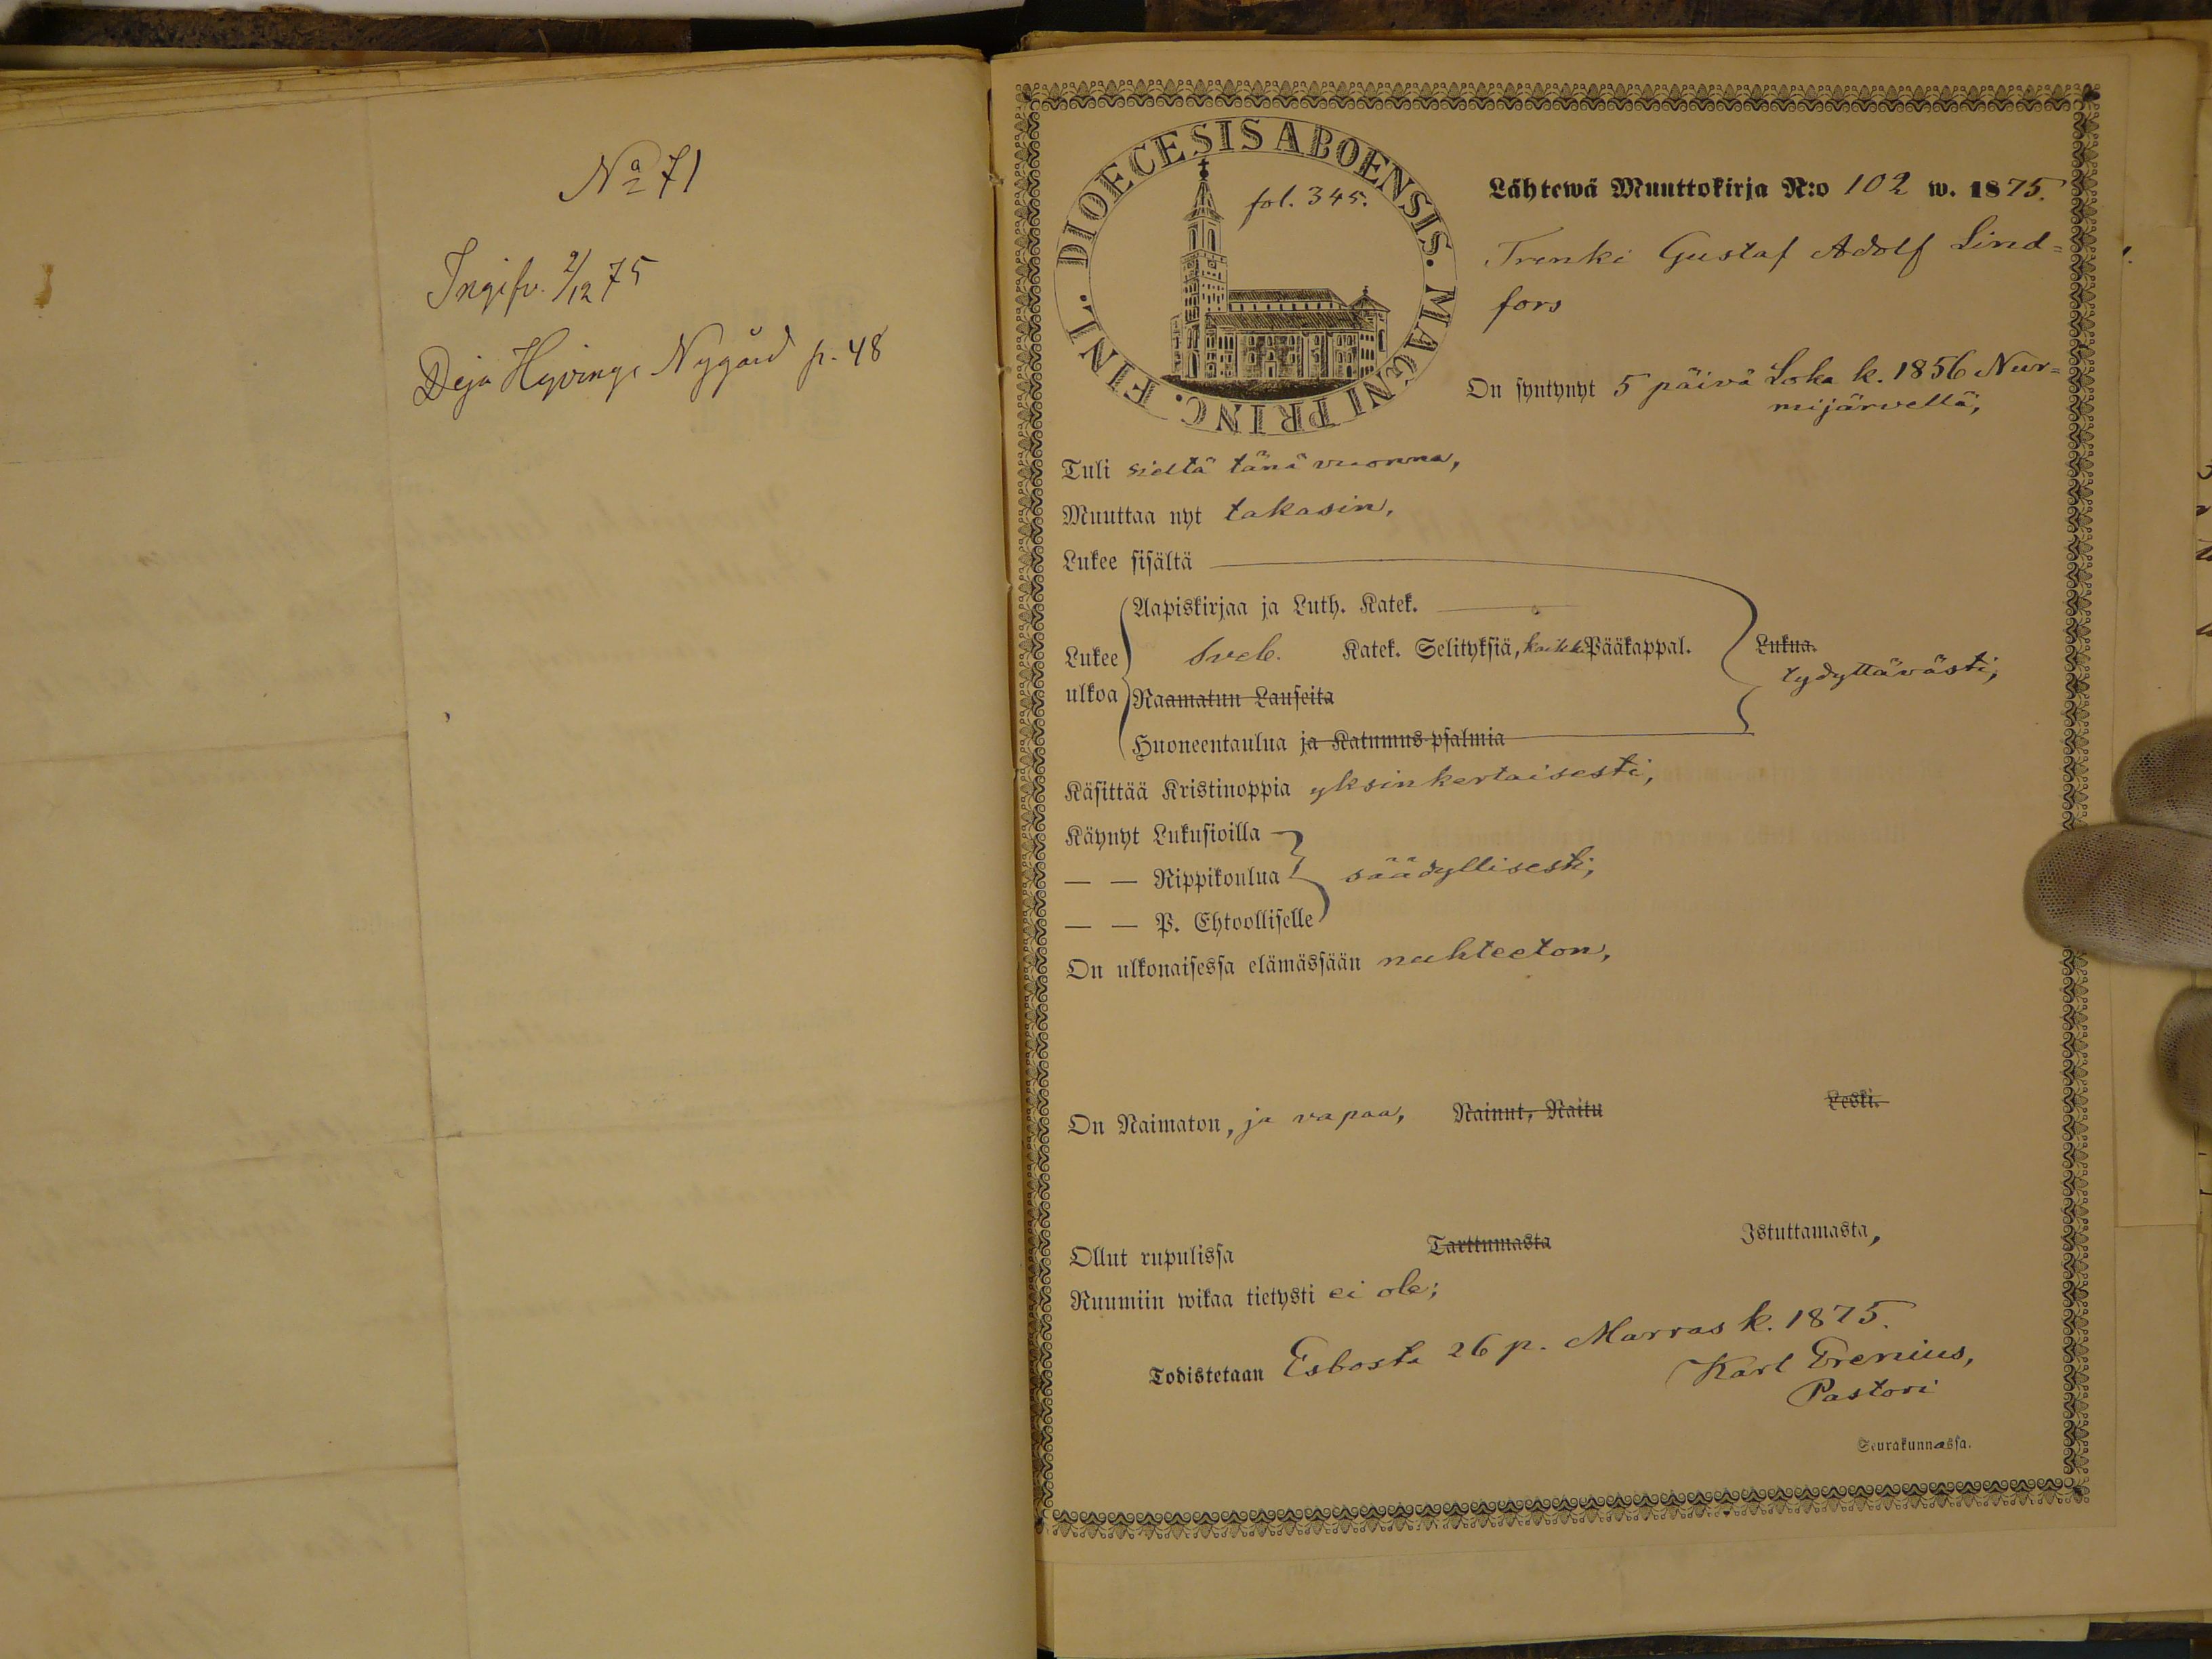 No 71
Ingifv. 2/12 75
Deja Hyvinge Nygård p. 48
DIOECESIS ABOENSIS. MAGNI PRINC. FINL.
fol. 345.
Lähtewä Muuttokirja N:o 102 w. 1875.
Trenki Gustaf Adolf Lind=
fors
On syntynyt 5 päivä Loka k. 1856 Nur=
mijärvellä,
Tuli sieltä tänä vuonna,
Muuttaa nyt takasin,
Lukee sisältä
Aapiskirjaa ja Luth. Katek.
Lukee Sveb. Katek. Selityksiä, kaikki Pääkappal. Lukua.
tydyttävästi,
ulkoa Raamatun Lauseita
Huoneentaulua ja Katumus-psalmia
Käsittää Kristinoppia yksinkertaisesti,
Käynyt Lukusioilla
— — Rippikoulua säädyllisesti,
— — P. Ehtoolliselle
On ulkonaisessa elämässään nuhteeton,
On Naimaton, ja vapaa, Nainut, Naitu Leski.
Ollut rupulissa Tarttumasta Istuttamasta,
Ruumiin wikaa tietysti ei ole;
Todistetaan Esbosta 26 p. Marras k. 1875.
Karl Erenius,
Pastori
Seurakunnassa.